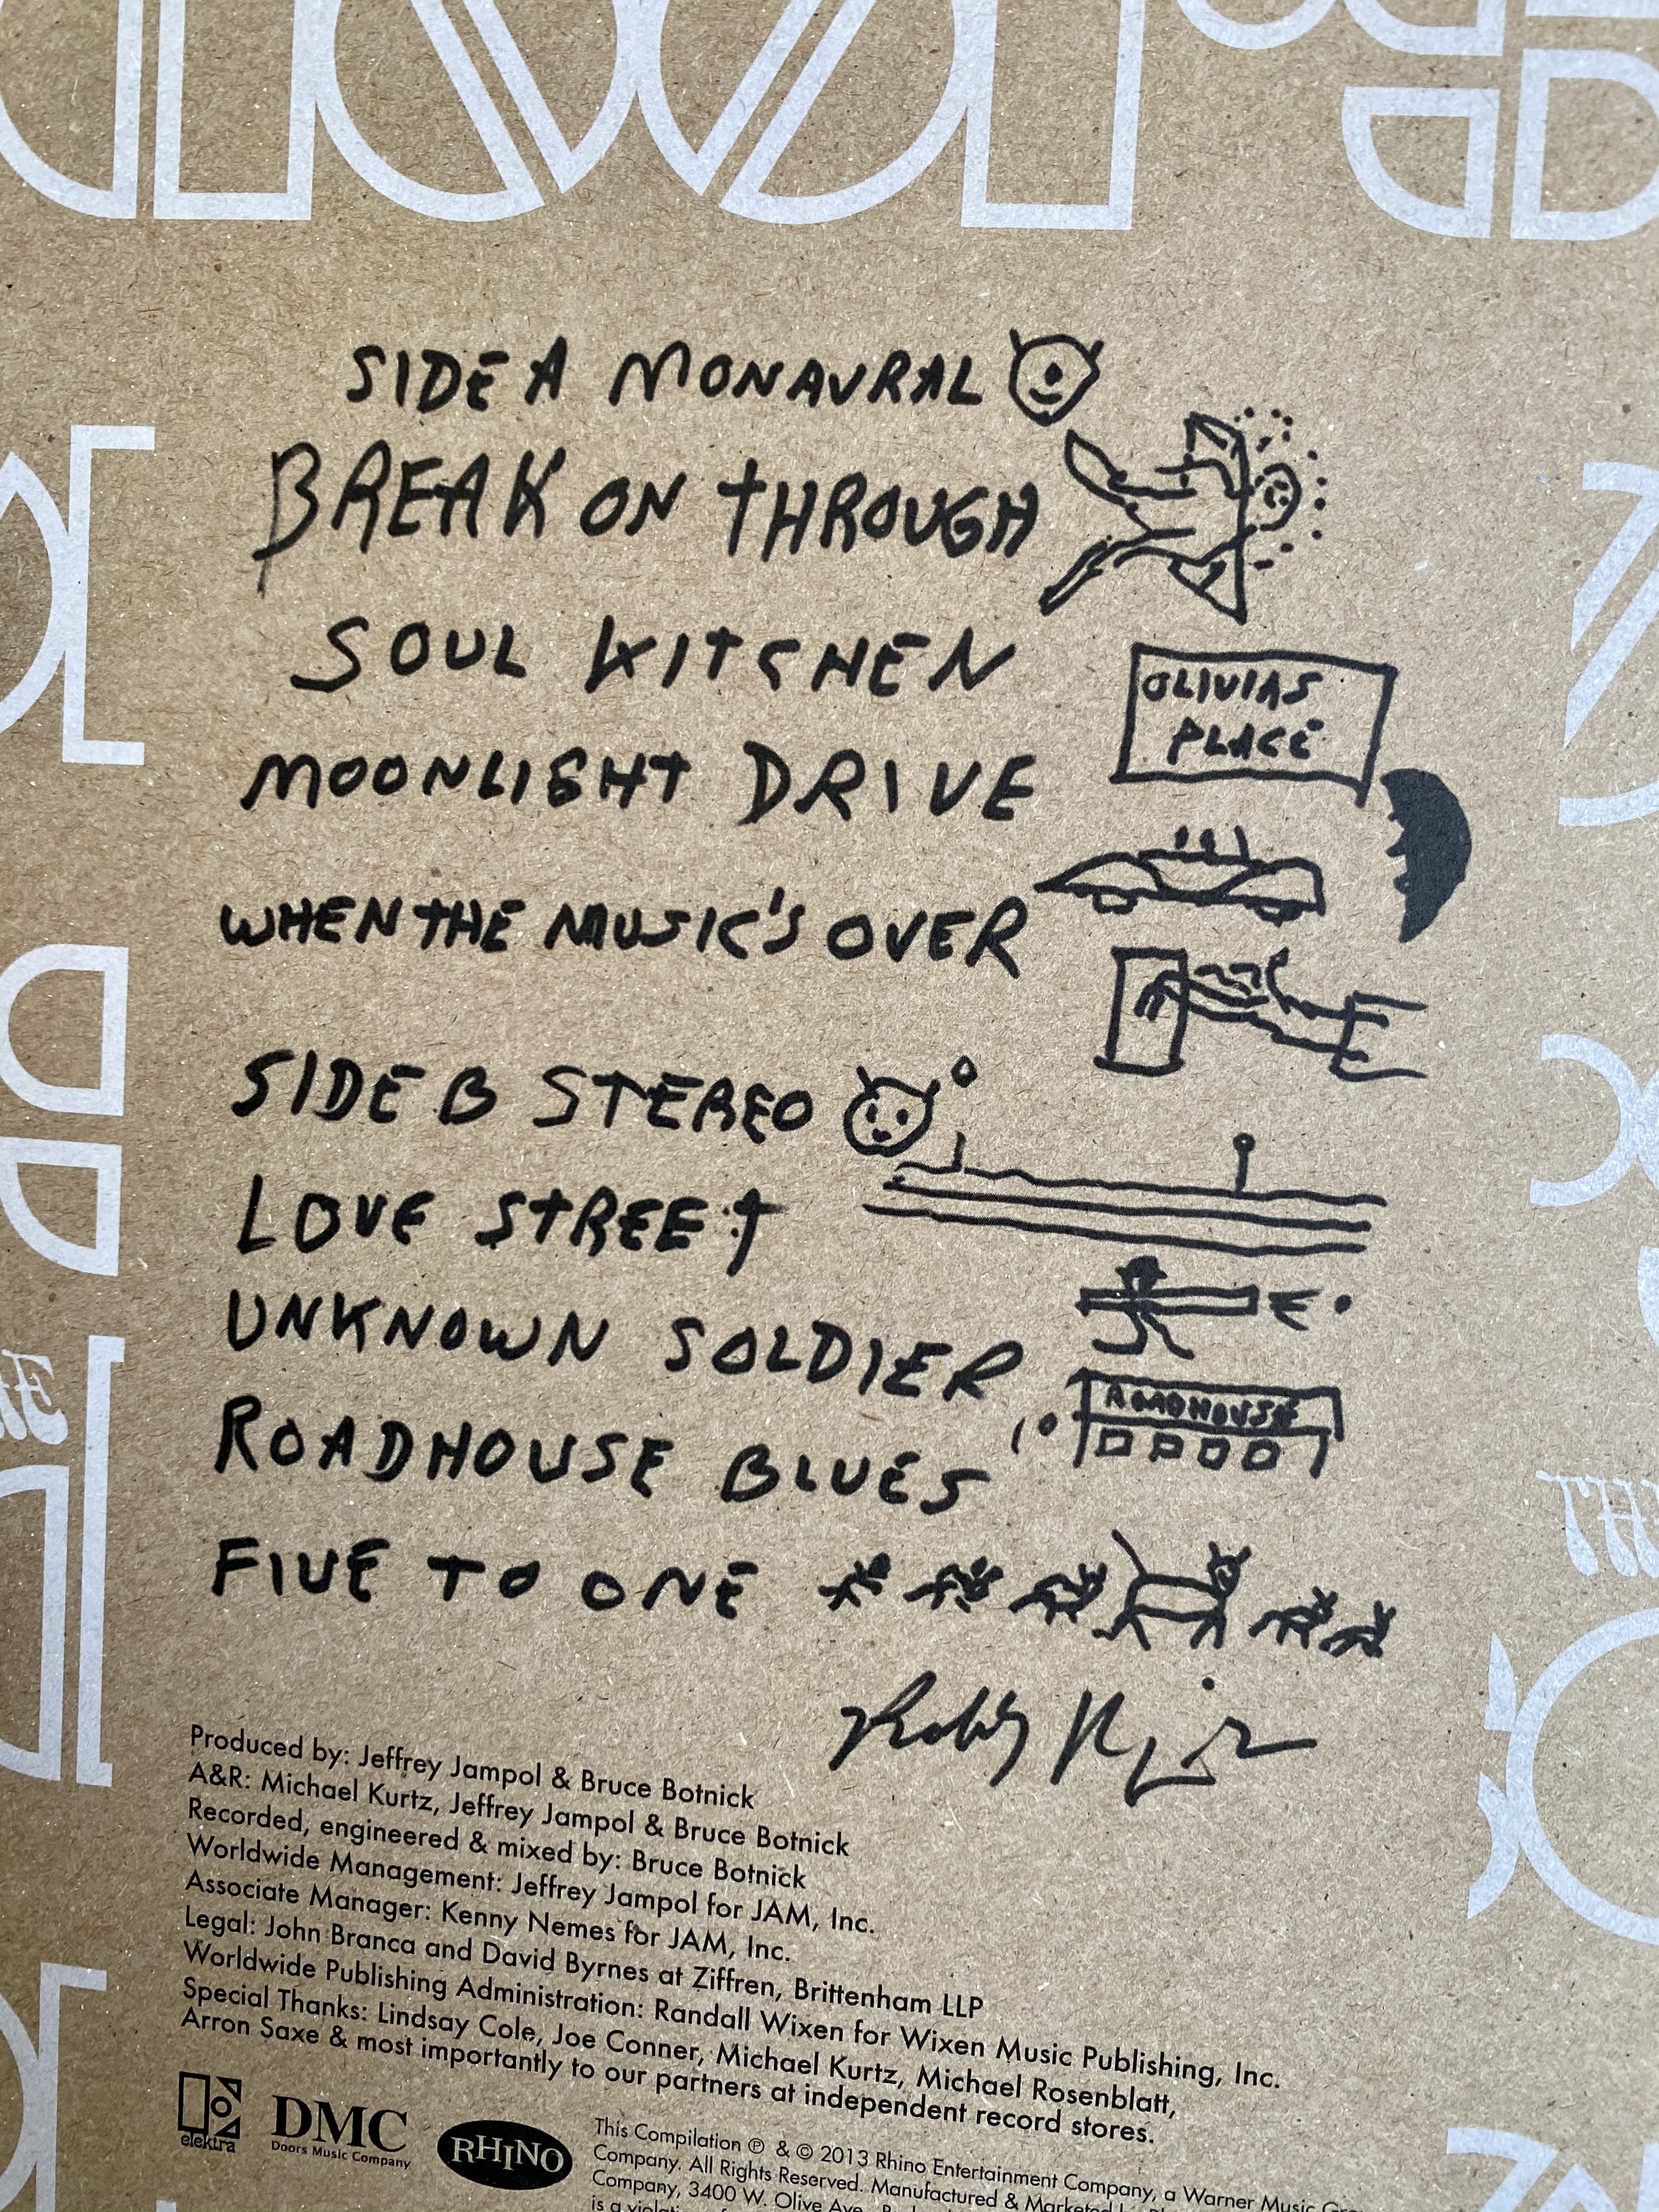 DOORS
SIDE A MONAURAL
BREAK ON THROUGH
SOUL KITCHEN
OLIVIAS
PLACE
MOONLIGHT DRIVE
WHEN THE MUSIC'S OVER
SIDE B STEREO
LOVE STREET
UNKNOWN SOLDIER
ROADHOUSE
ROADHOUSE BLUES
FIVE TO ONE
Robby Krieger
Produced by: Jeffrey Jampol & Bruce Botnick
A&R: Michael Kurtz, Jeffrey Jampol & Bruce Botnick
Recorded, engineered & mixed by: Bruce Botnick
Worldwide Management: Jeffrey Jampol for JAM, Inc.
Associate Manager: Kenny Nemes for JAM, Inc.
Legal: John Branca and David Byrnes at Ziffren, Brittenham LLP
Worldwide Publishing Administration: Randall Wixen for Wixen Music Publishing, Inc.
Special Thanks: Lindsay Cole, Joe Conner, Michael Kurtz, Michael Rosenblatt,
Arron Saxe & most importantly to our partners at independent record stores.
elektra
DMC
Doors Music Company
RHINO
This Compilation ℗ & © 2013 Rhino Entertainment Company, a Warner Music
Company. All Rights Reserved. Manufactured & Marketed
Company, 3400 W. Olive Ave.
is a